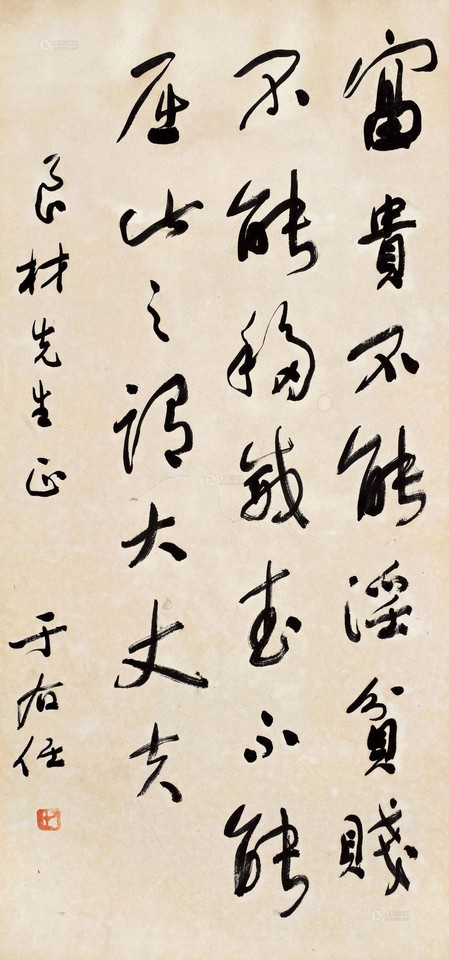 富貴不能淫貧賤
不能移威武不能
屈此之謂大丈夫
良材先生正 于右任